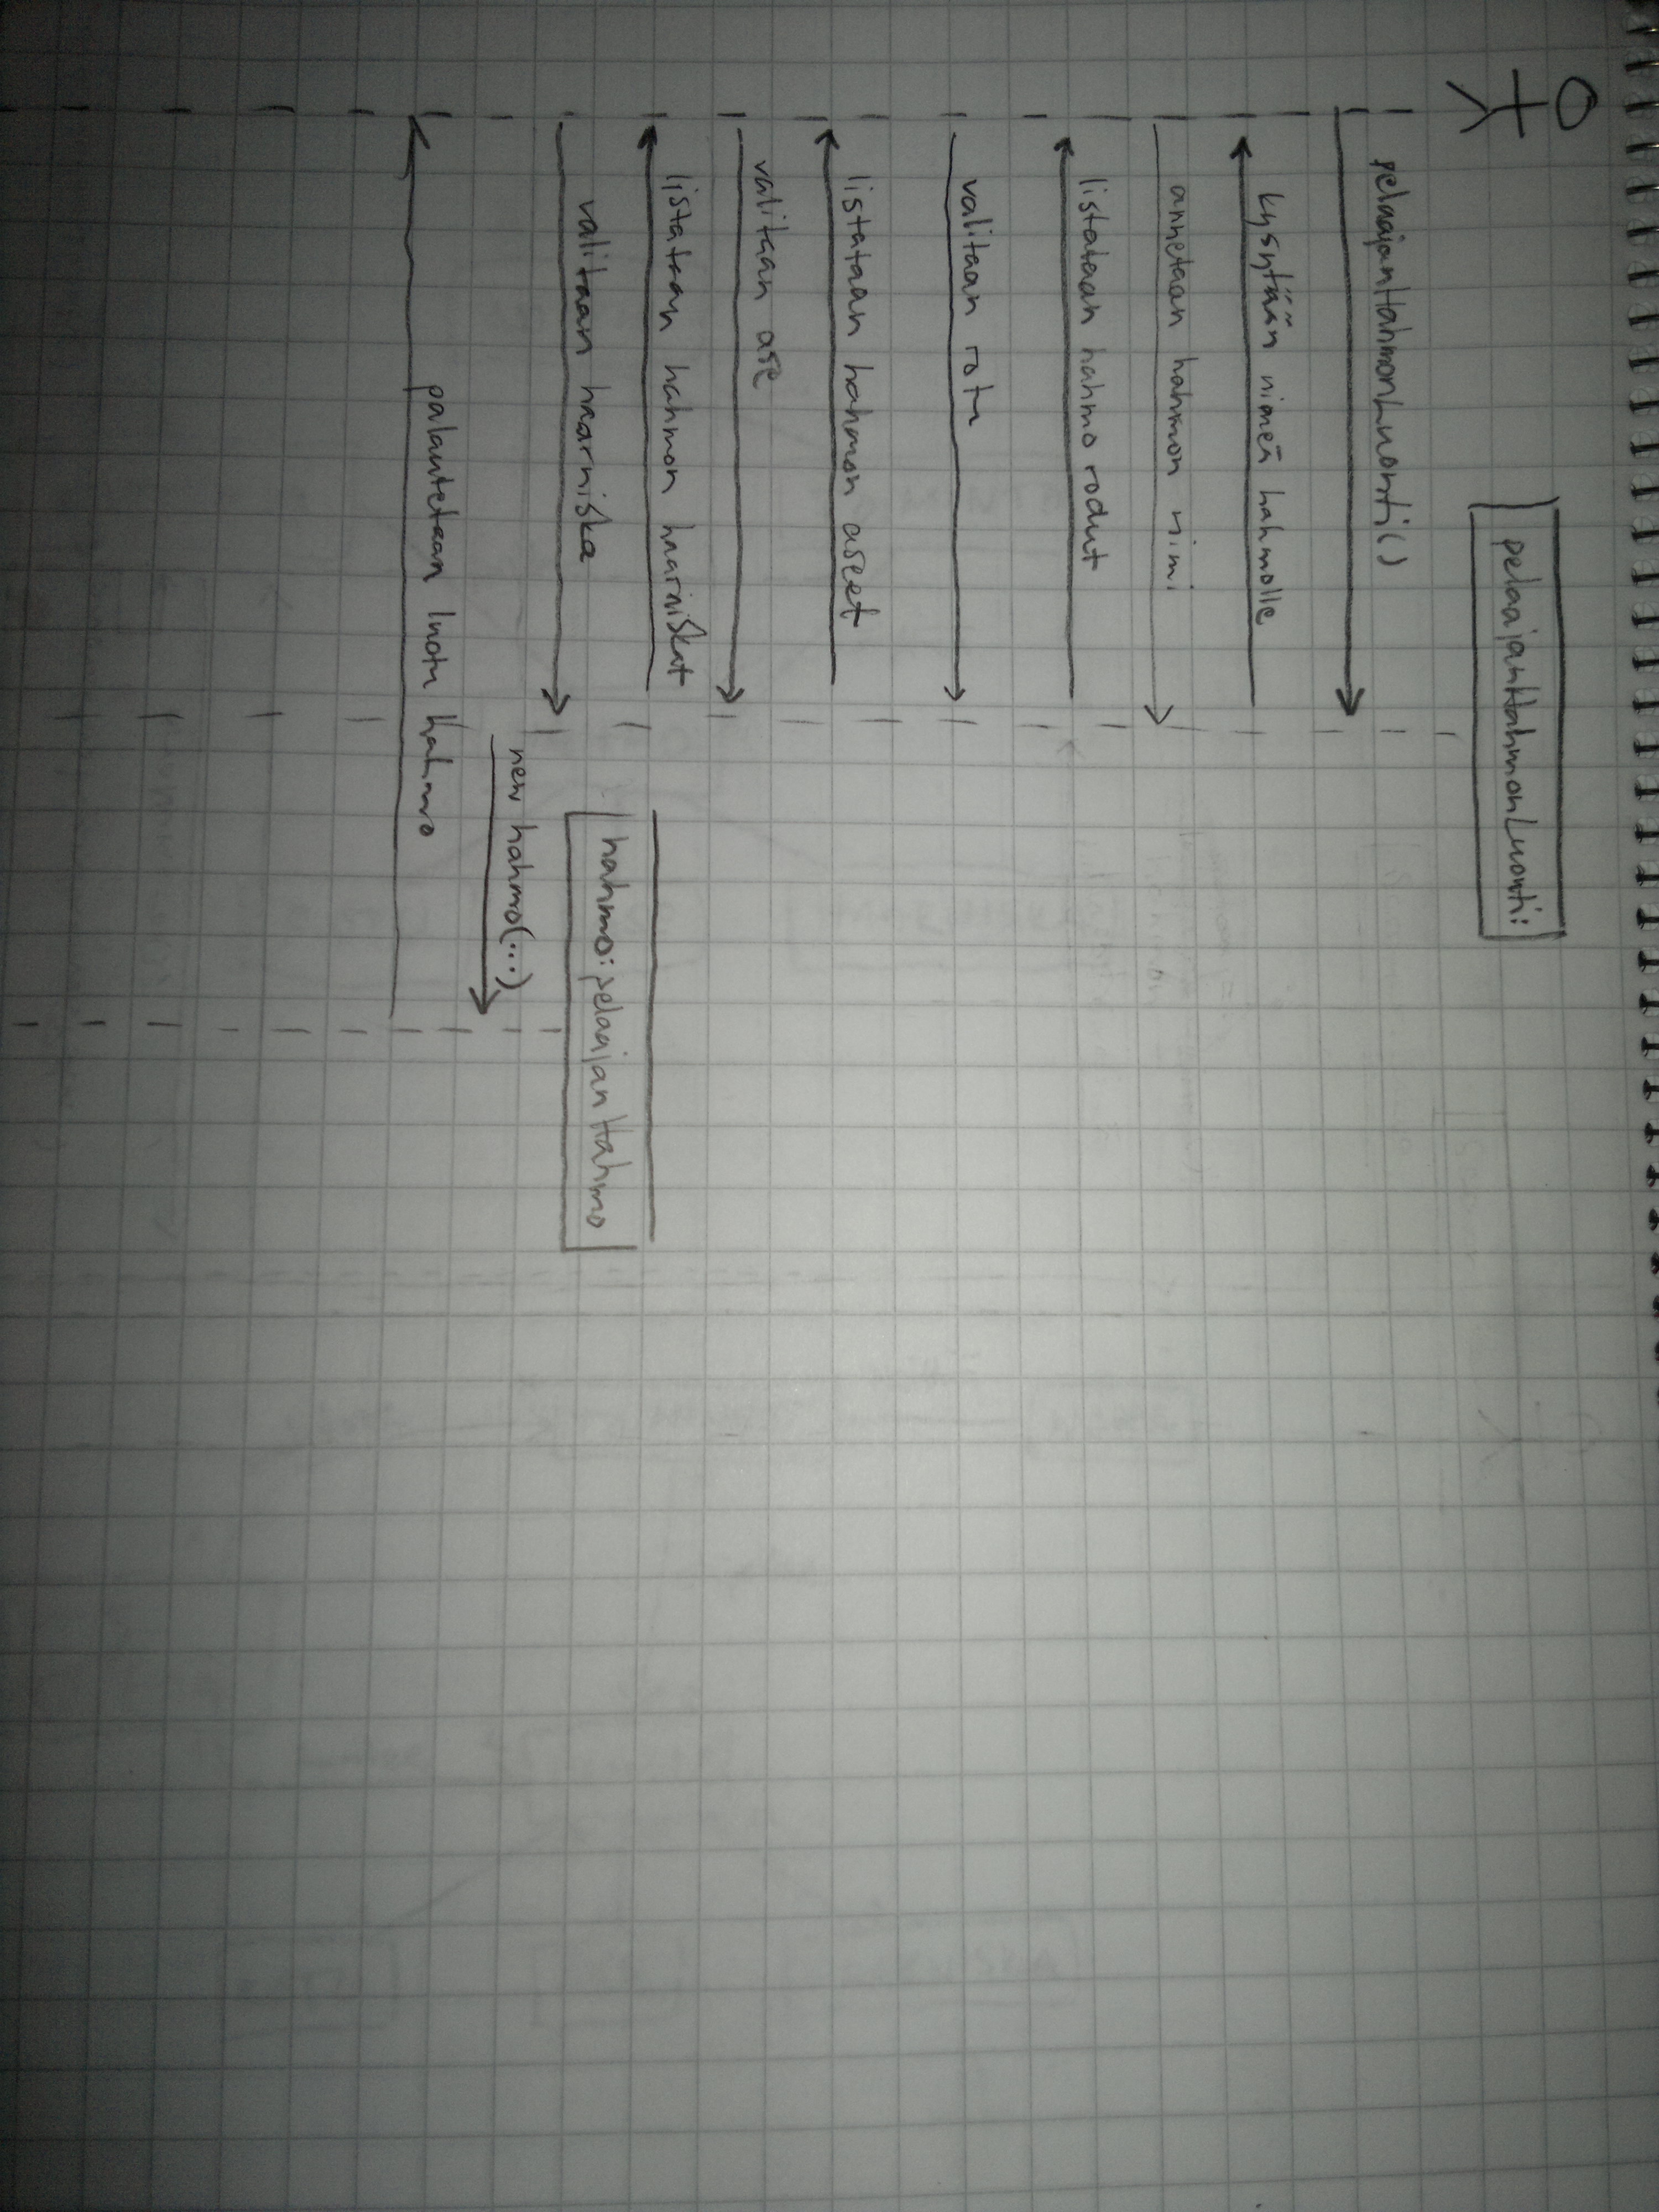 pelaajanHahmonLuonti:
pelaajanHahmonLuonti()
kysytään nimeä hahmolle
annetaan hahmon nimi
listataan hahmo rodut
valitaan rotu
listataan hahmon aseet
valitaan ase
listataan hahmon haarniskat
hahmo:pelaajanHahmo
valitaan haarniska
new hahmo(...)
palautetaan luotu hahmo